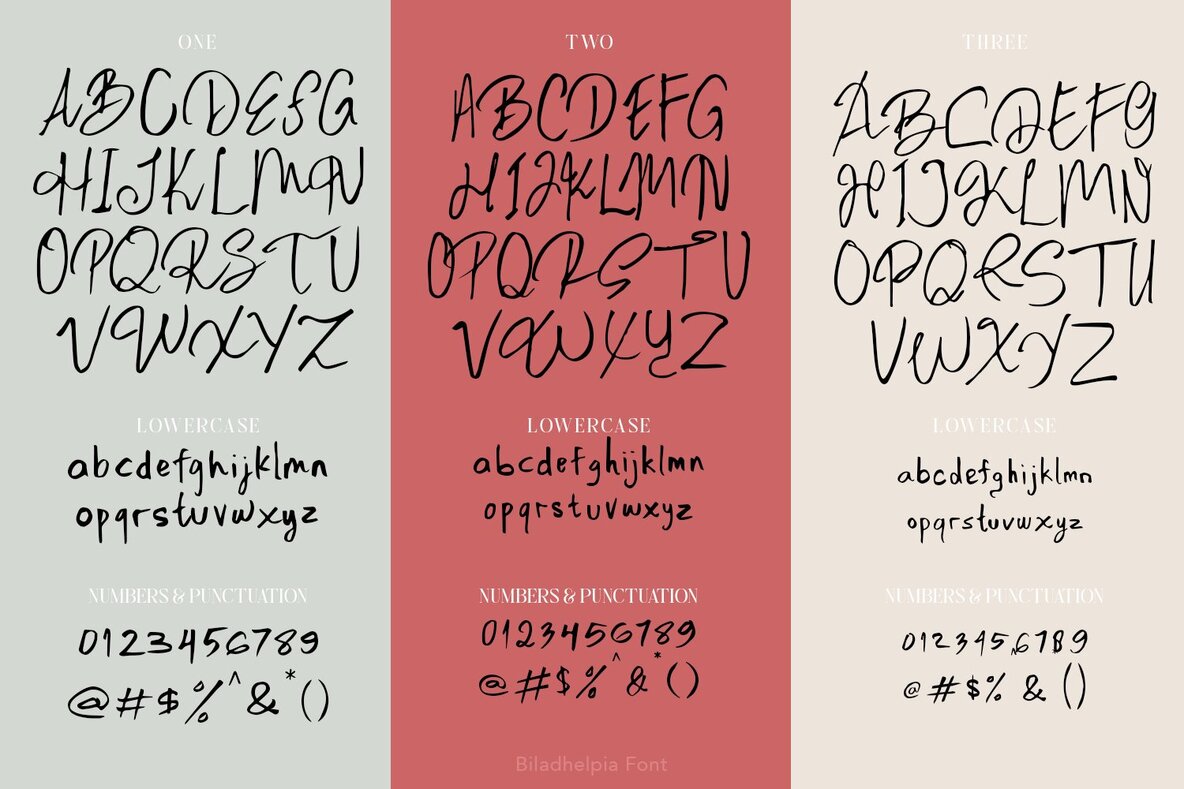 ONE
ABCDEFG
HIJKLMN
OPQRSTU
VWXYZ
LOWERCASE
abcdefghijklmn
opqrstuvwxyz
NUMBERS & PUNCTUATION
0123456789
@#$%^&*()
TWO
ABCDEFG
HIJKLMN
OPQRSTU
VWXYZ
LOWERCASE
abcdefghijklmn
opqrstuvwxyz
NUMBERS & PUNCTUATION
0123456789
@#$%^&*()
THREE
ABCDEFG
HIJKLMN
OPQRSTU
VWXYZ
LOWERCASE
abcdefghijklmn
opqrstuvwxyz
NUMBERS & PUNCTUATION
0123456789
@#$%^&*()
Biladhelpia Font